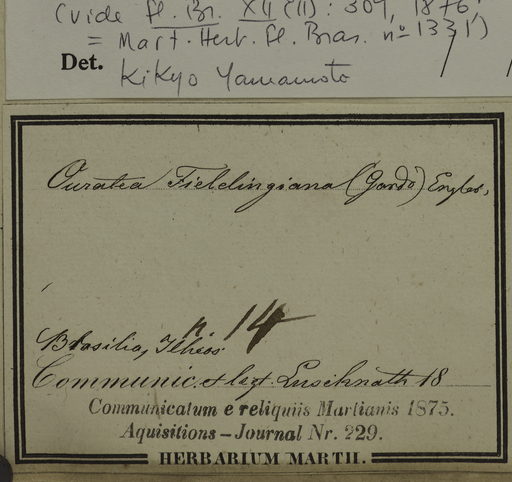 (vide Fl. Br. XII (II): 309, 1876,
= Mart. Herb. Fl. Bras. nº 1331)
Det. Kikyo Yamamoto
Ouratea Fieldingiana (Gardn) Engler,
n. 14
Brasilia, Ilheos
Communic. & legt. Luschnath 18
Communicatum e reliquiis Martianis 1875.
Aquisitions – Journal Nr. 229.
HERBARIUM MARTII.